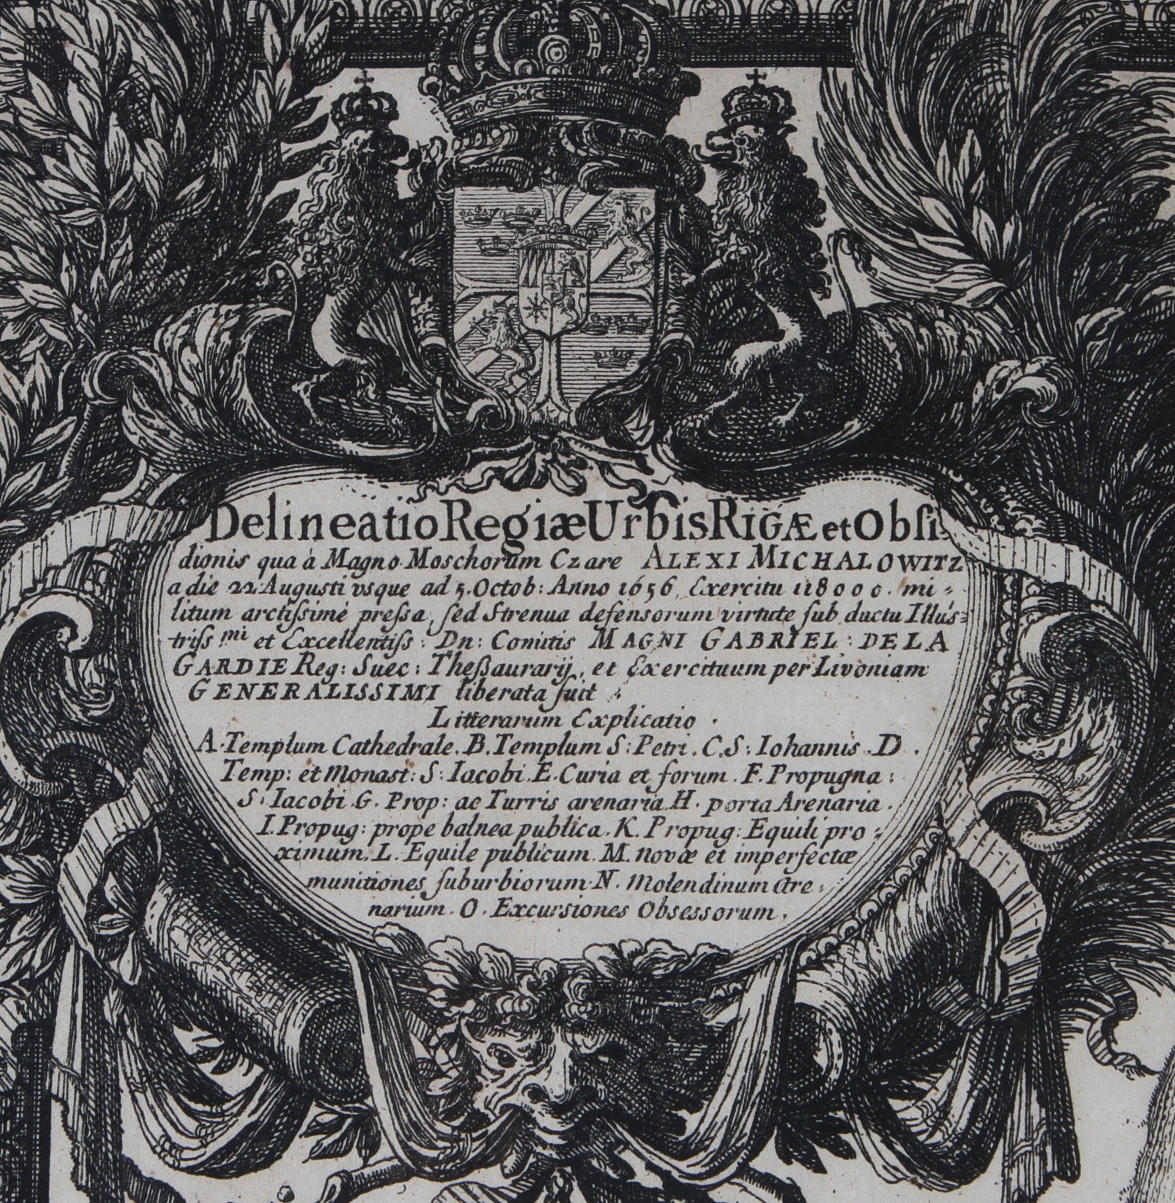 Delineatio Regiæ Urbis RIGÆ et Obſi
dionis qua à Magno Moschorum Czare ALEXI MICHALOWITZ
a die 22 Augusti vsque ad 5. Octob: Anno 1656 Exercitu 118000. mi-
litum arctiſſimè preſſa, ſed Strenua defensorum virtute ſub ductu Illuſ-
triſſ:mi et Excellentiſſ: Dn: Comitis MAGNI GABRIEL: DE LA
GARDIE Reg: Suec: Theſſaurarij, et Exercituum per Livoniam
GENERALISSIMI liberata fuit.
Litterarum Explicatio.
A. Templum Cathedrale. B. Templum S: Petri. C. S: Iohannis. D.
Temp: et Monast: S: Iacobi. E. Curia et forum. F. Propugna:
S: Iacobi. G. Prop: ac Turris arenaria. H. porta Arenaria.
I. Propug: prope balnea publica. K. Propug: Equili pro-
ximum. L. Equile publicum. M. novæ et imperfectæ
munitiones ſuburbiorum. N. Molendinum Are-
narium. O. Excursiones Obsessorum.